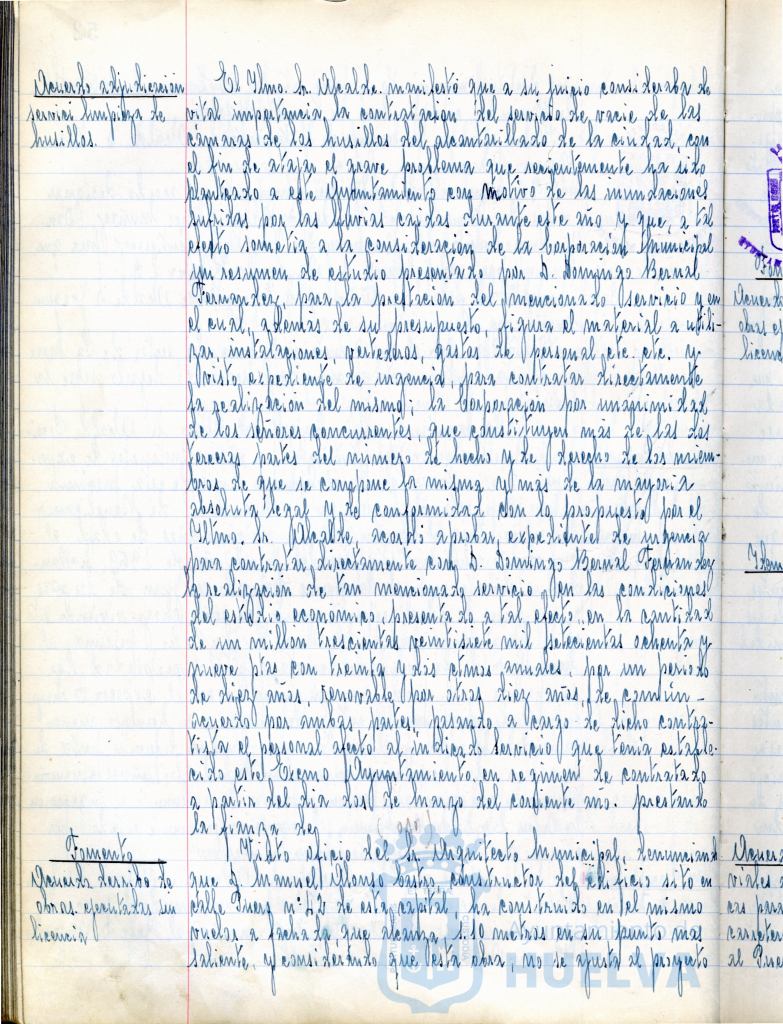 Acuerdo adjudicación
servici limpieza de
husillos.
El Ilmo. Sr. Alcalde manifestó que a su juicio consideraba de
vital importancia, la contratación del servicio de vacie de las
cámaras de los husillos del alcantarillado de la ciudad, con
el fin de atajar el grave problema que recientemente ha sido
planteado a este Ayuntamiento con motivo de las inundaciones
sufridas por las lluvias caidas durante este año y que, a tal
efecto sometia a la consideración de la Corporación Municipal
un resumen de estudio presentado por D. Domingo Bernal
Fernandez para la prestación del mencionado servicio y en
el cual, además de su presupuesto, figura el material a utili-
zar, instalaciones, vertederos, gastos de personal etc. etc. y
visto expediente de urgencia para contratar directamente
la realización del mismo; la Corporación por unanimidad
de los señores concurrentes, que constituyen más de las dos
terceras partes del número de hecho y de derecho de los miem-
bros de que se compone la misma y más de la mayoria
absoluta legal y de conformidad con lo propuesto por el
Iltmo. Sr. Alcalde, acordó aprobar expediente de urgencia
para contratar directamente con D. Domingo Bernal Fernandez
la realización de tan mencionado servicio en las condiciones
del estudio económico, presentado a tal efecto, en la cantidad
de un millón trescientas veintisiete mil setecientas ochenta y
nueve ptas con treinta y dos ctmos anuales, por un periodo
de diez años, renovable por otros diez años, de común-
acuerdo por ambas partes pasando a cargo de dicho contra-
tista el personal afecto al indicado servicio que tenia estable-
cido este Excmo Ayuntamiento en regimen de contratado
a partir del dia dos de marzo del corriente año. prestando
la fianza de
Fomento
Acuerdo derribo de
obras ejecutadas sin
licencia
Visto oficio del Sr. Arquitecto Municipal, denunciand
que D. Manuel Alonso Castro constructor del edificio sito en
calle Puerto nº 42 de esta capital ha construido en el mismo
vuelos a fachada que alcanza 1.10 metros en su punto mas
saliente, y considerando que esta obra, no se ajusta al proyecto
Ayuntamiento de
HUELVA
Acuerdo
obras ej
licenc
Idem
Acuerd
viales a
cas para
caracter
al Puer